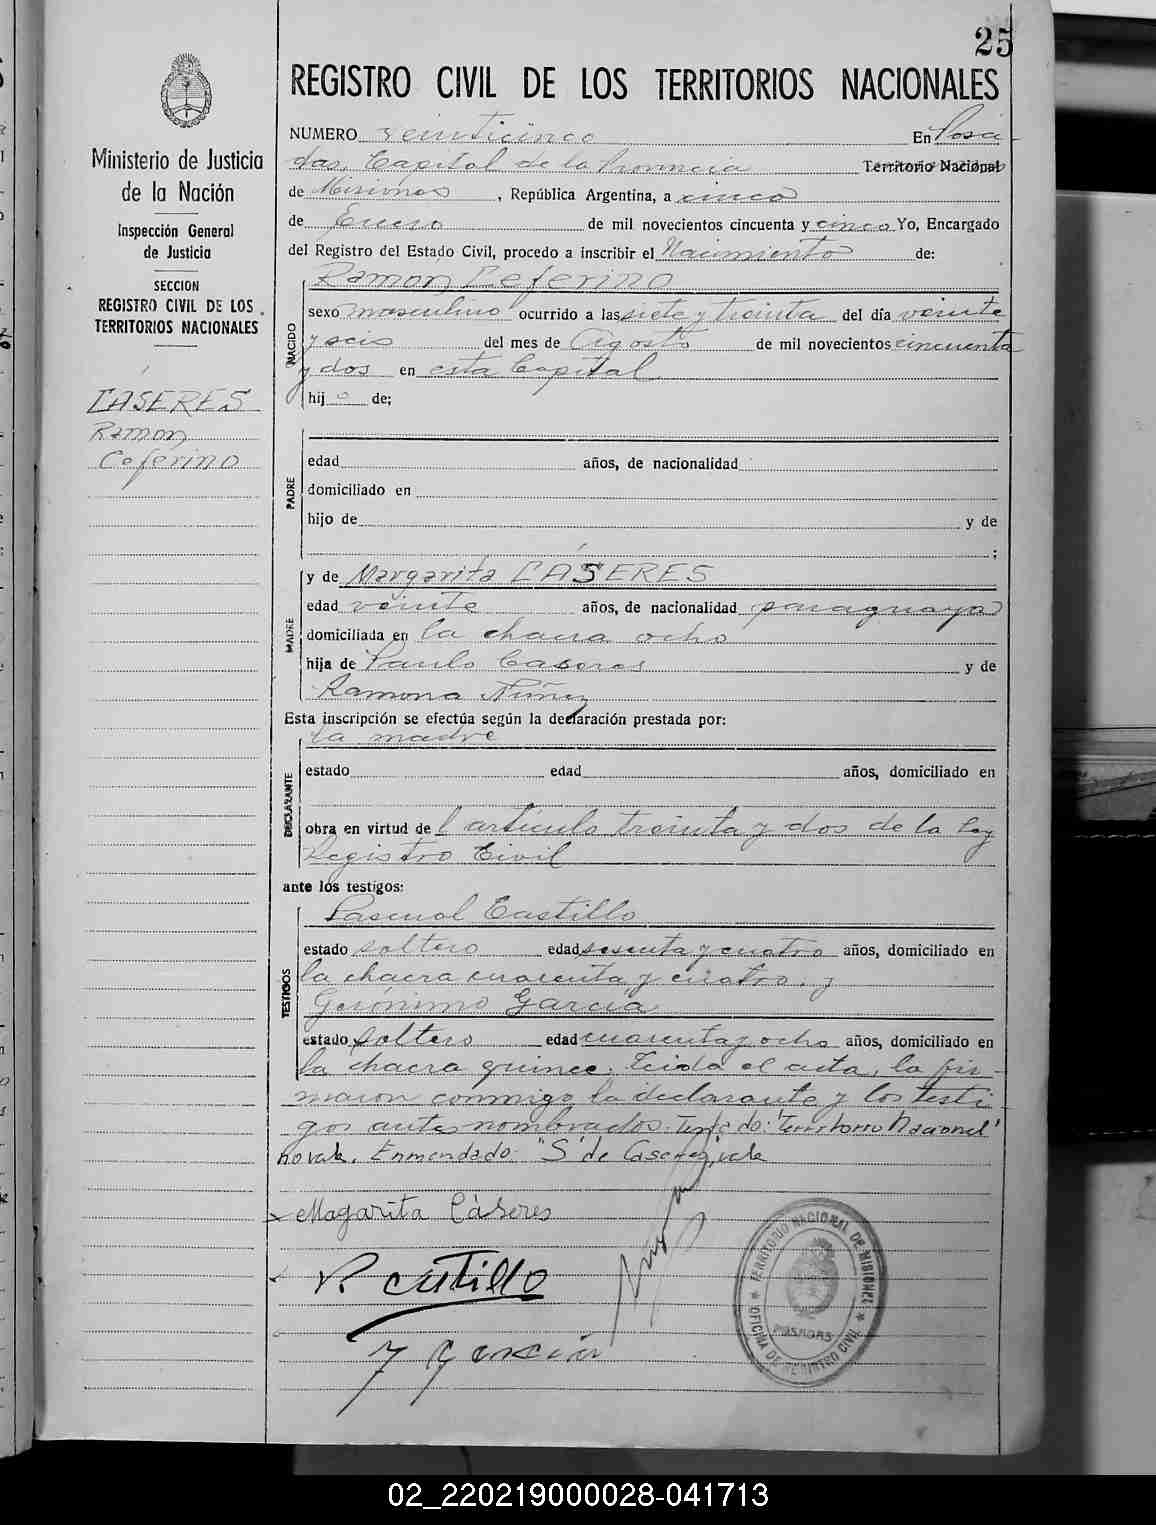 25
REGISTRO CIVIL DE LOS TERRITORIOS NACIONALES
Ministerio de Justicia
de la Nación
Inspección General
de Justicia
SECCION
REGISTRO CIVIL DE LOS
TERRITORIOS NACIONALES
CÁSERES
Ramon
Ceferino
NUMERO veinticinco En Posa
das, Capital de la Provincia Territorio Nacional
de Misiones, República Argentina, a cinco
de Enero de mil novecientos cincuenta y cinco Yo, Encargado
del Registro del Estado Civil, procedo a inscribir el Nacimiento de:
NACIDO
Ramon Ceferino
sexo masculino ocurrido a las siete y treinta del día veinte
y seis del mes de Agosto de mil novecientos cincuenta
y dos en esta Capital
hijo de;
PADRE
edad años, de nacionalidad
domiciliado en
hijo de y de
;
MADRE
y de Margarita CÁSERES
edad veinte años, de nacionalidad paraguaya
domiciliada en la chacra ocho
hija de Paulo Caseres y de
Ramona Núñez
Esta inscripción se efectúa según la declaración prestada por:
la madre
DECLARANTE
estado edad años, domiciliado en
obra en virtud de l artículo treinta y dos de la Ley
Registro Civil
ante los testigos:
TESTIGOS
Pascual Castillo
estado soltero edad sesenta y cuatro años, domiciliado en
la chacra cuarenta y cuatro, y
Gerónimo García
estado soltero edad cuarenta y ocho años, domiciliado en
la chacra quince. Leida el acta, la fir
maron conmigo la declarante y los testi
gos antes nombrados. Testado: "Territorio Nacional"
no vale. Enmendado "S" de Caseres, vale
x Magarita Cáseres
P. Castillo
J Garcia
TERRITORIO NACIONAL DE MISIONES
POSADAS
OFICINA DE REGISTRO CIVIL
02_220219000028-041713